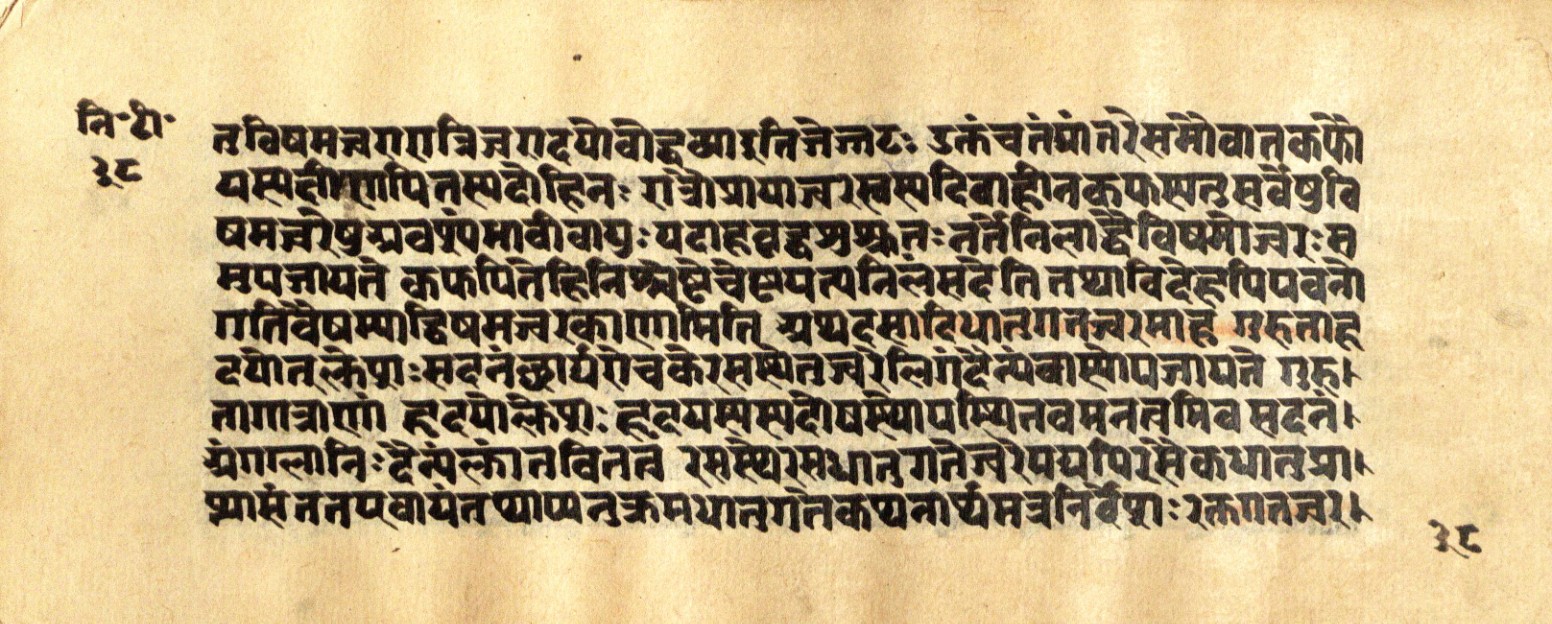 नि॰टी॰
३८
तविषमज्वरारात्रिज्वरादयोवोद्धव्याइतिजेज्जटः उक्तंचतंत्रांतरेसमौवातकफौ
यस्यक्षीणपित्तस्यदेहिनः रात्रौप्रायोज्वरस्तस्यदिवाहीनकफस्यतुसर्वेषुवि
षमज्वरेषुअवश्पंभावीवायुः यदाहवृद्धसुश्रुतः नर्तेनिलाद्वैविषमोज्वरः स
मुपजायते कफपित्तेहिनिश्चेष्टेचेष्टयत्यनिलंसदेति तथाविदेहेपिपवनो
गतिवैषम्याद्विषमज्वरकारणमिति अथरसादिधातुगतज्वरमाह गुरुताहृ
दयोत्क्लेशः सदनंछर्द्यरोचकेरसस्थेतुज्वरेलिंगंदैन्यंचास्योपजायते गुरु
तागात्राणां हृदयोत्क्लेशः हृदयस्थस्यदोषस्योपस्थितवमनत्वमिव सदनं
अंगग्लानिः दैन्यंक्लांतचित्तत्वं रसस्थेरसधातुगतेज्वरेयद्यपिरसैकधातुप्रा
प्र्यासंततएवायंतथाप्यनुक्रमधातुगतकथनार्थमत्रनिर्देशः रक्तगतज्वर
३८